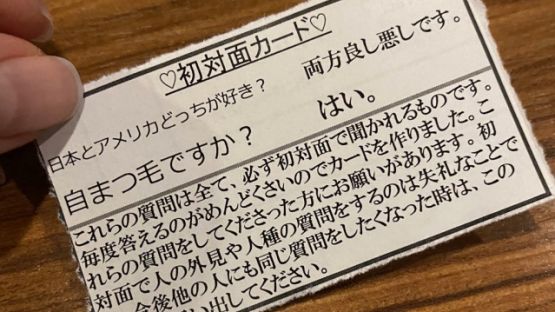 ♡初対面カード♡
日本とアメリカどっちが好き？ 両方良し悪しです。
自まつ毛ですか？ はい。
これらの質問は全て、必ず初対面で聞かれるものです。
毎度答えるのがめんどくさいのでカードを作りました。こ
れらの質問をしてくださった方にお願いがあります。初
対面で人の外見や人種の質問をするのは失礼なことで
今後他の人にも同じ質問をしたくなった時は、この
い出してください。